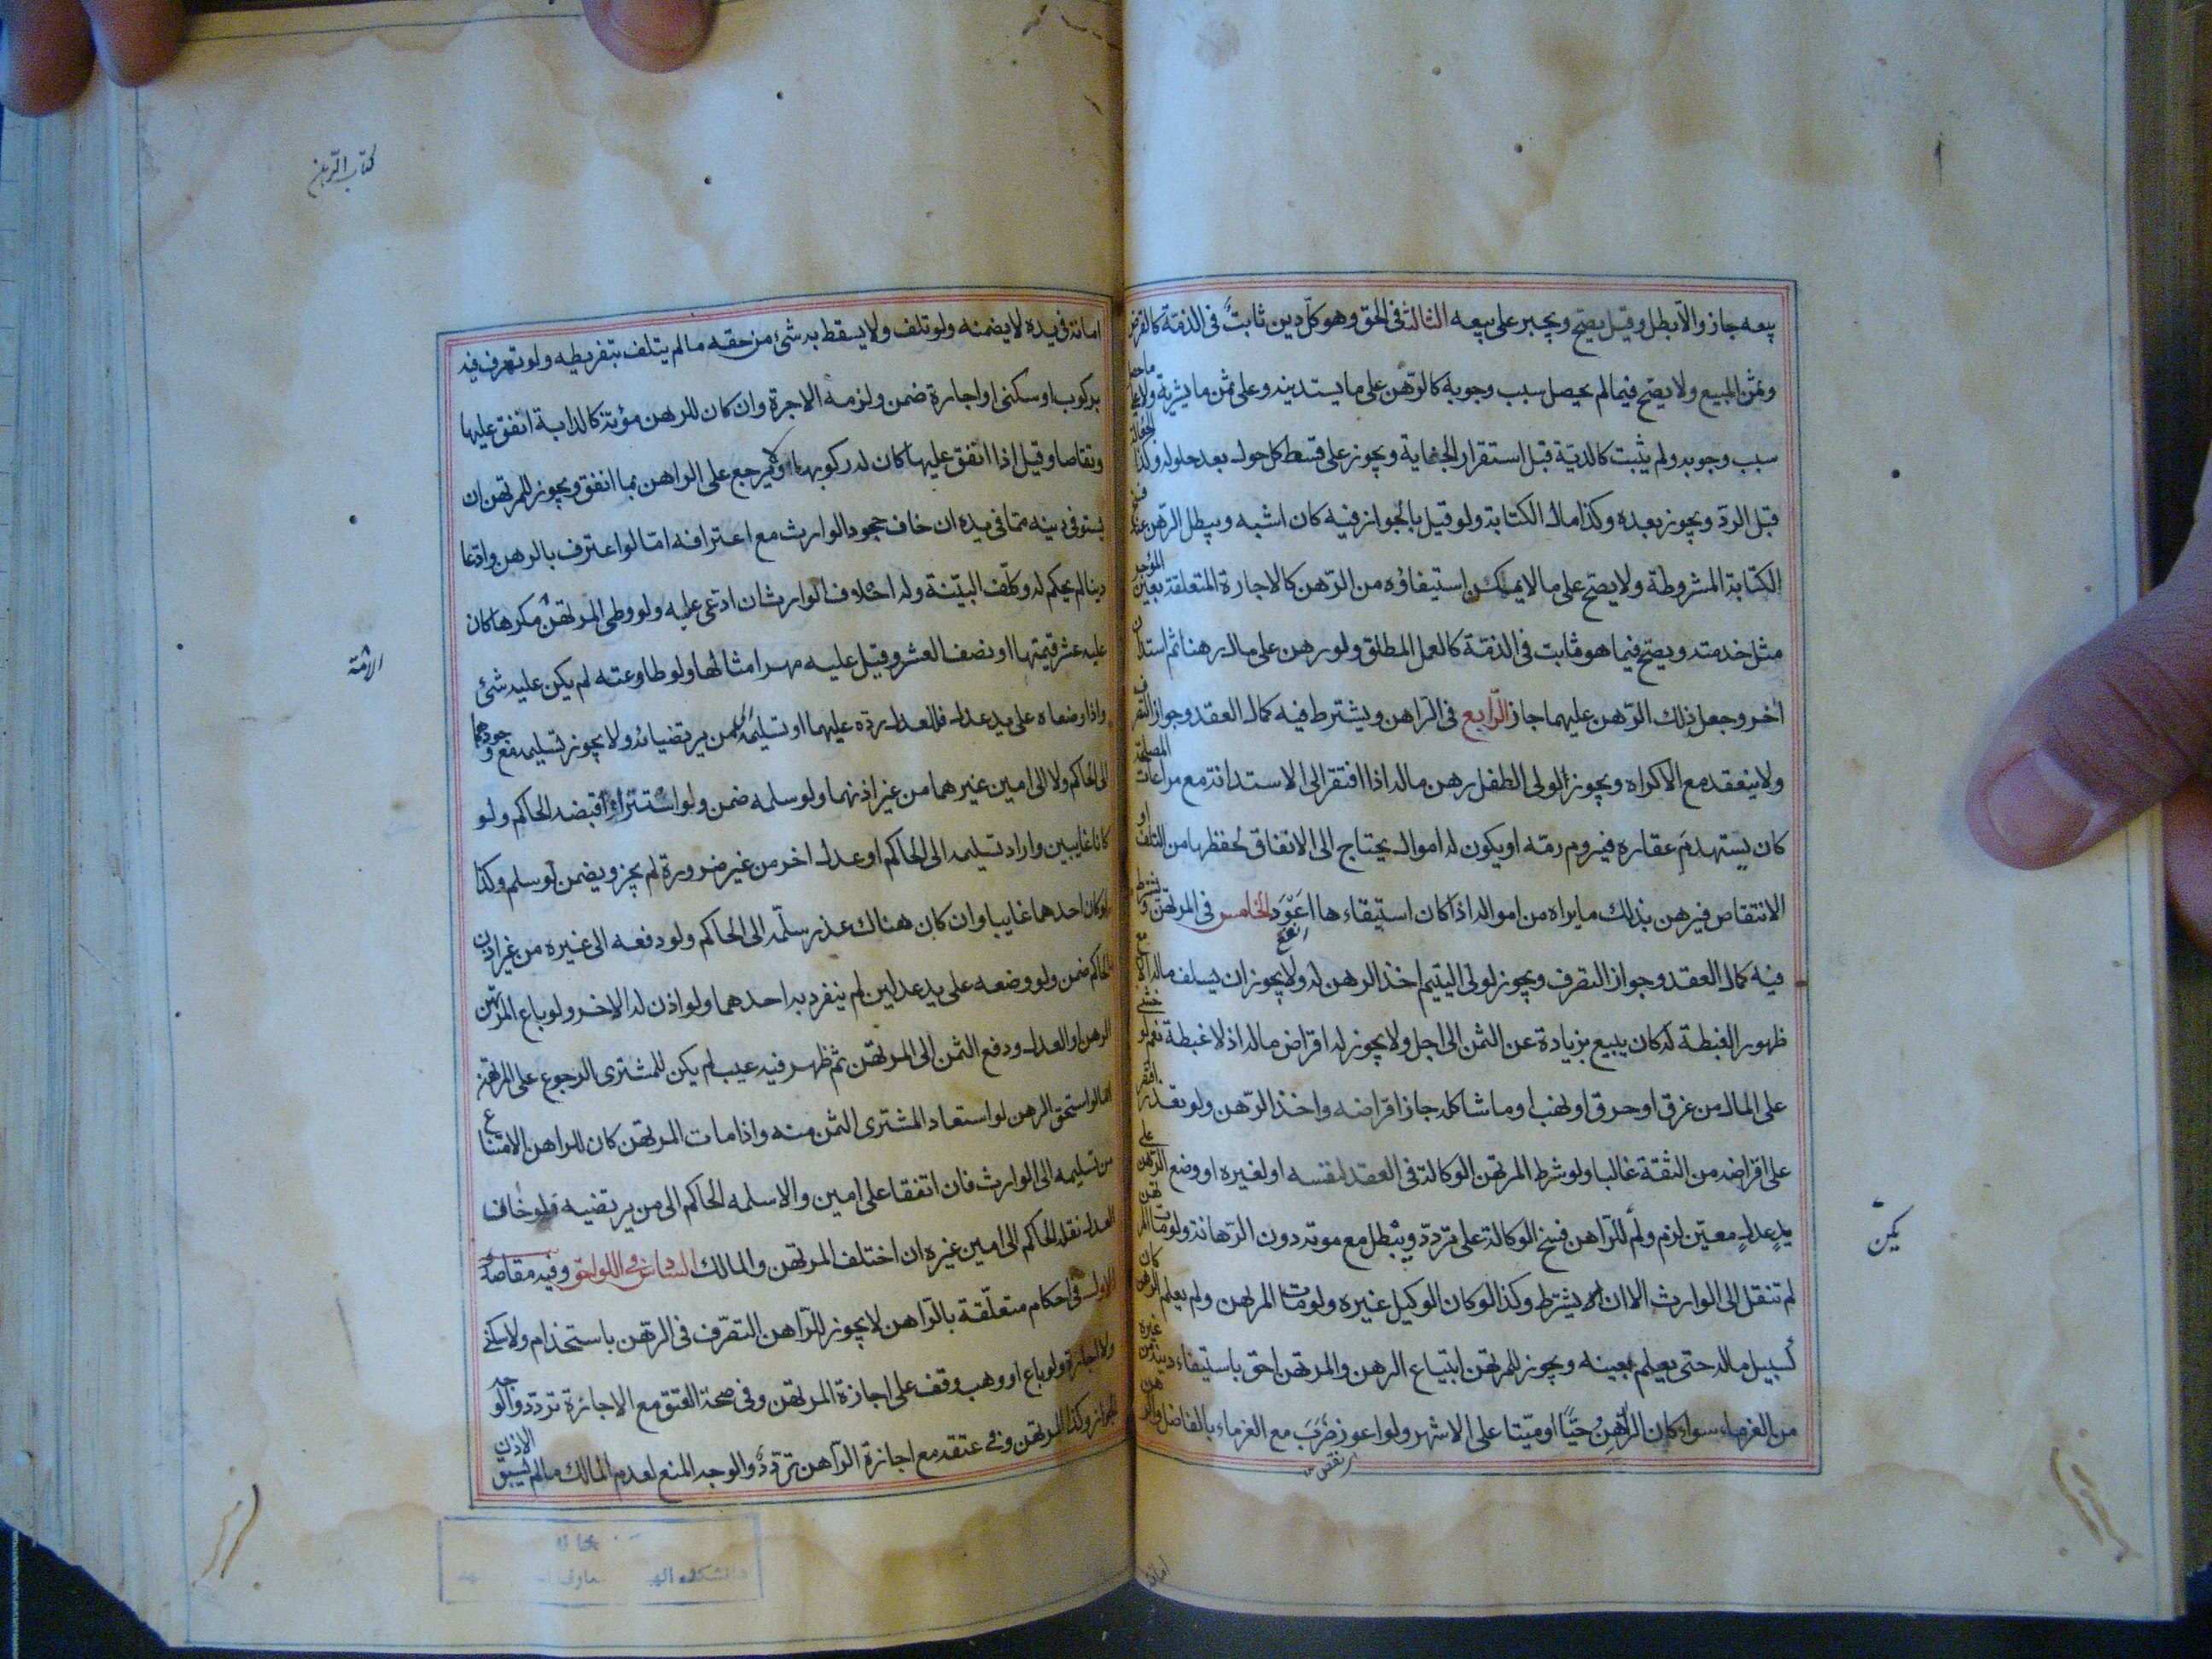 بيعه جاز والا بطل وقيل يصح ويجبر على بيعه الثالث فى الحق وهو كل دين ثابت فى الذمة كالقرض
وثمن المبيع ولا يصح فيما لم يحصل سبب وجوبه كالرهن على ما يستدينه وعلى ثمن ما يشتريه ولا على ما حصل
سبب وجوبه ولم يثبت كالدية قبل استقرار الجناية ويجوز على قسط كل حول بعد حلوله وكذا الجعالة
قبل الرد ويجوز بعده وكذا مال الكتابة ولو قيل بالجواز فيه كان اشبه ويبطل الرهن عند فسخ
الكتابة المشروطة ولا يصح على ما لا يمكن استيفاؤه من الرهن كالاجارة المتعلقة بعين المؤجر
مثل خدمته ويصح فيما هو ثابت فى الذمة كالعمل المطلق ولو رهن على مال رهنا ثم استدان
اخر وجعل ذلك الرهن عليهما جاز الرابع فى الراهن ويشترط فيه كمال العقد وجواز التصرف
ولا ينعقد مع الاكراه ويجوز لولى الطفل رهن ماله اذا افتقر الى الاستدانة مع مراعات المصلحة
كان يستهدم عقاره فيروم رمه او يكون له اموال يحتاج الى الانفاق لحفظها من التلف او
الانتقاص فيرهن بذلك ما يراه من امواله اذا كان استبقاءها اعود الخامس فى المرتهن ويشترط
انفع
فيه كمال العقد وجواز التصرف ويجوز لولى اليتيم اخذ الرهن له ولا يجوز ان يسلف ماله الا مع
ظهور الغبطة له كان يبيع بزيادة عن الثمن الى اجل ولا يجوز له اقراض ماله اذ لا غبطة نعم لو خشى
على المال من غرق او حرق او نهب او ما شاكله جاز اقراضه واخذ الرهن ولو تعذر افتقر
على اقراضه من الثقة غالبا ولو شرط المرتهن الوكالة فى العقد لنفسه او لغيره او وضع الرهن على
يد عدل معين لزم ولم للراهن فسخ الوكالة على تردد ويبطل مع موته دون الرهانة ولو مات المرتهن
لم تنقل الى الوارث الا ان يشترط وكذا لو كان الوكيل غيره ولو مات المرتهن ولم يعلم الرهن كان
كسبيل ماله حتى يعلم بعينه ويجوز للمرتهن ابتياع الرهن والمرتهن احق باستيفاء دينه من غيره
من الغرماء سواء كان الراهن حيا او ميتا على الاشهر ولو اعوز ضرب مع الغرماء بالفاضل والرهن
امانة
يكن
كتاب الرهن
امانة فى يده لا يضمنه ولو تلف ولا يسقط به شئ من حقه ما لم يتلف بتفريطه ولو تصرف فيه
بركوب او سكنى او اجارة ضمن ولزمه الاجرة وان كان للرهن مؤنة كالدابة انفق عليها
وتقاصا وقيل اذا انفق عليها كان له ركوبها ولا يرجع على الراهن بما انفق ويجوز للمرتهن ان
يستوفى دينه مما فى يده ان خاف جحود الوارث مع اعترافه اما لو اعترف بالرهن وادعا
دينا لم يحكم له وكلف البينة وله احلاف الوارث ان ادعى علمه ولو وطى المرتهن مكرها كان
عليه عشر قيمتها او نصف العشر وقيل عليه مهر امثالها ولو طاوعته لم يكن عليه شئ
الامة
واذا وضعاه على يد عدل فللعدل رده عليهما او تسليمه الى من يرتضيانه ولا يجوز تسليمه مع وجودهما
الى الحاكم ولا الى امين غيرهما من غير اذنهما ولو سلمه ضمن ولو استترا اقبضه الحاكم ولو
كانا غايبين واراد تسليمه الى الحاكم او عدل اخر من غير ضرورة لم يجز ويضمن لو سلم وكذا
لو كان احدهما غايبا وان كان هناك عذر سلمه الى الحاكم ولو دفعه الى غيره من غير اذن
الحاكم ضمن ولو وضعه على يد عدلين لم ينفرد به احدهما ولو اذن له الاخر ولو باع المرتهن
الرهن او العدل ودفع الثمن الى المرتهن ثم ظهر فيه عيب لم يكن للمشترى الرجوع على المرتهن
اما لو استحق الرهن لو استعاد المشترى الثمن منه واذا مات المرتهن كان للراهن الامتناع
من تسليمه الى الوارث فان اتفقا على امين والا سلمه الحاكم الى من يرتضيه ولو خاف
العدل نقله الحاكم الى امين غيره ان اختلف المرتهن والمالك السادس فى اللواحق وفيه مقاصد
الاول فى احكام متعلقة بالراهن لا يجوز للراهن التصرف فى الرهن باستخدام ولا سكنى
ولا اجارة ولو باع او وهب وقف على اجازة المرتهن وفى صحة العتق مع الاجازة تردد والوجه
الجواز وكذا المرتهن وفى عتقه مع اجازة الراهن تردد والوجه المنع لعدم المالك ما لم يسبق الاذن